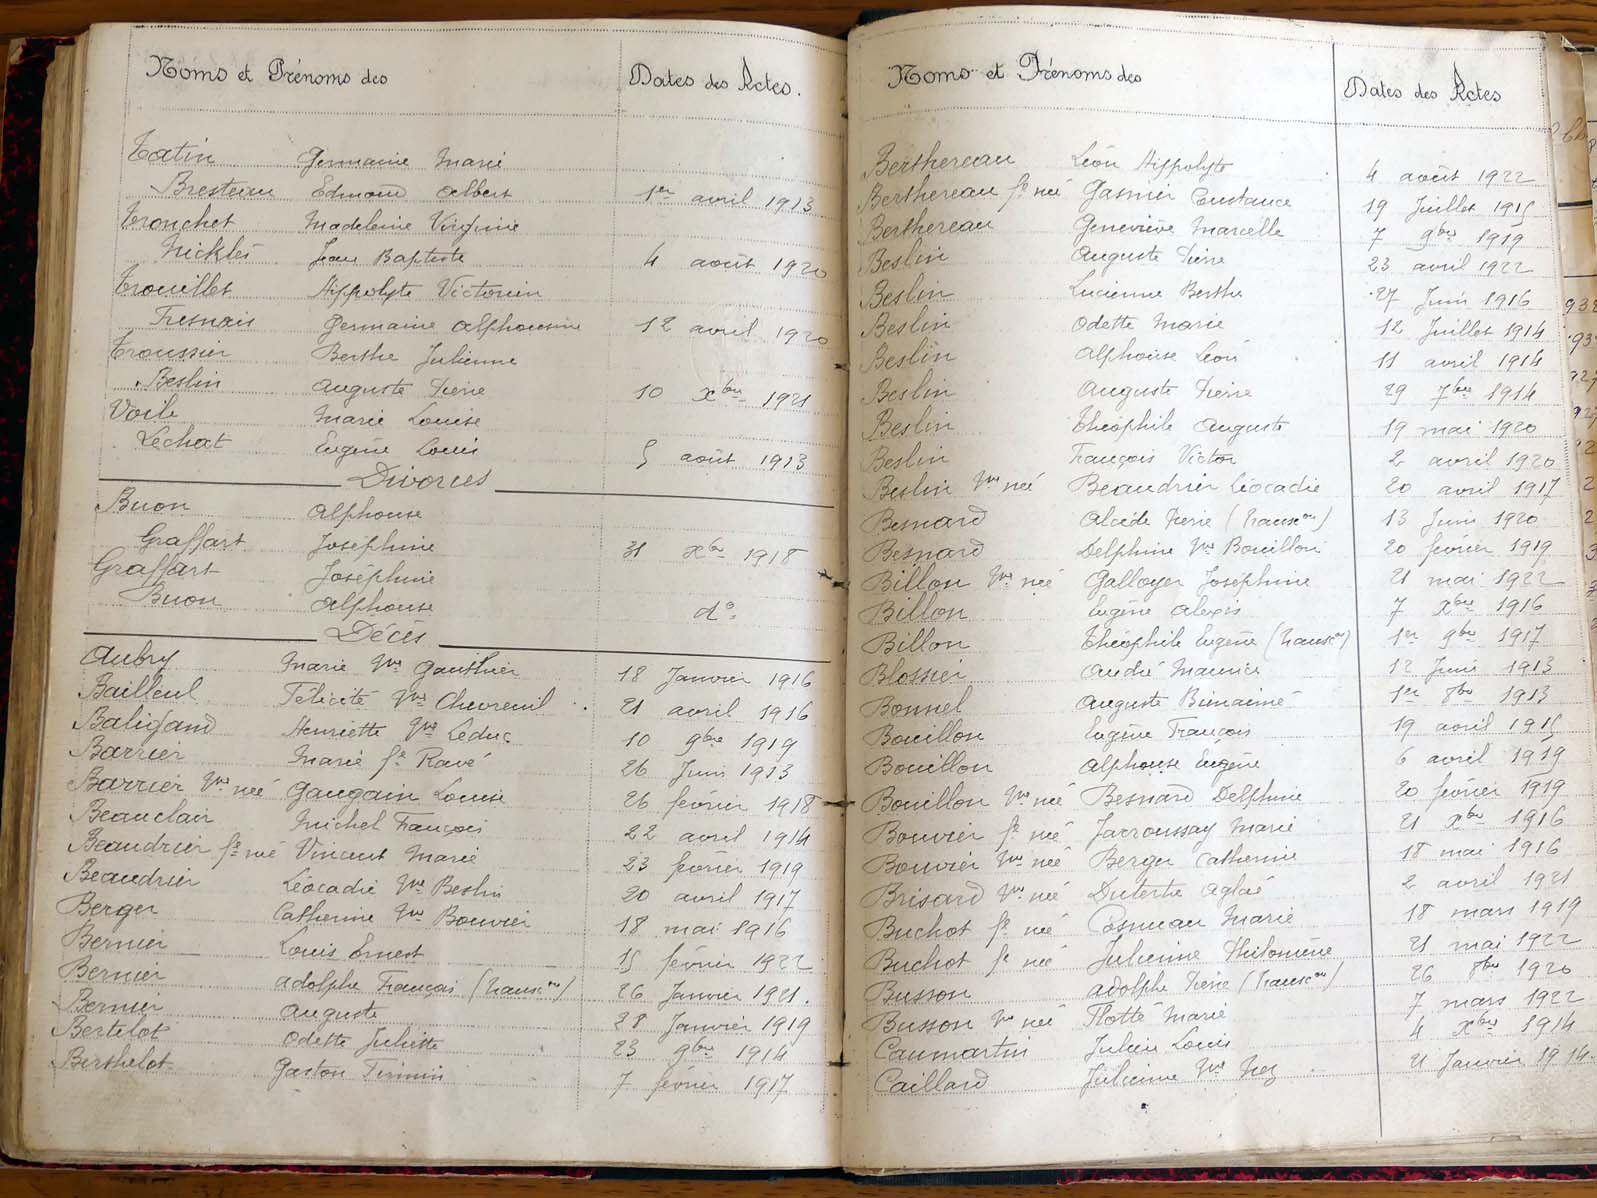 Noms et Prénoms des Dates des Actes.
Tatin Germaine Marie
Bresteau Edmond Albert 1er avril 1913
Tronchet Madeleine Virginie
Nicklès Jean Baptiste 4 août 1920
Trouillet Hippolyte Victorien
Fresnais Germaine Alphonsine 12 avril 1920
Troussier Berthe Julienne
Beslin Auguste Pierre 10 xbre 1921
Voile Marie Louise
Lechat Eugène Louis 5 août 1913
Divorces
Buon Alphonse
Graffart Joséphine 31 xbre 1918
Graffart Joséphine
Buon Alphonse do
Décès
Aubry Marie Vve Gauthier 18 Janvier 1916
Bailleul Félicité Vve Chevreuil 21 avril 1916
Baligand Henriette Vve Leduc 10 9bre 1919
Barrier Marie fe Ravé 26 Juin 1913
Barrier Vve née Gaugain Louise 26 février 1918
Beauclair Michel François 22 avril 1914
Beaudrier fe née Vincent Marie 23 février 1919
Beaudrier Léocadie Vve Beslin 20 avril 1917
Berger Catherine Vve Bouvier 18 mai 1916
Bernier Louis Ernest 15 février 1922
Bernier Adolphe François (Transcon) 26 Janvier 1921.
Bernier Auguste 28 Janvier 1919
Bertelot Odette Juliette 23 9bre 1914
Berthelot Gaston Firmin 7 février 1917
Noms et Prénoms des Dates des Actes
Berthereau Léon Hippolyte 4 août 1922
Berthereau fe née Gasnier Constance 19 Juillet 1915
Berthereau Geneviève Marcelle 7 9bre 1919
Beslin Auguste Pierre 23 avril 1922
Beslin Lucienne Berthe 27 Juin 1916
Beslin Odette Marie 12 Juillet 1914
Beslin Alphonse Léon 11 avril 1914
Beslin Auguste Pierre 29 7bre 1914
Beslin Théophile Auguste 19 mai 1920
Beslin François Victor 2 avril 1920
Beslin Vve née Beaudrier Léocadie 20 avril 1917
Besnard Alcide Pierre (Transcon) 13 Juin 1920
Besnard Delphine Vve Bouillon 20 février 1919
Billon Vve née Galloyer Joséphine 21 mai 1922
Billon Eugène Alexis 7 xbre 1916
Billon Théophile Eugène (Transcon) 1er 9bre 1917
Blossier André Maurice 12 Juin 1913
Bonnel Auguste Bienaimé 1er 8bre 1913
Bouillon Eugène François 19 avril 1915
Bouillon Alphonse Eugène 6 avril 1919
Bouillon Vve née Besnard Delphine 20 février 1919
Bouvier fe née Jarroussay Marie 21 xbre 1916
Bouvier Vve née Berger Catherine 18 mai 1916
Brisard Vve née Dutertre Aglaé 2 avril 1921
Buchot fe née Cosneau Marie 18 mars 1919
Buchot fe née Julienne Philomène 21 mai 1922
Busson Adolphe Pierre (Transcon) 26 8bre 1920
Busson Vve née Flotté Marie 7 mars 1922
Caumartin Julien Louis 4 xbre 1914
Caillard Julienne Vve Nez 21 Janvier 1914